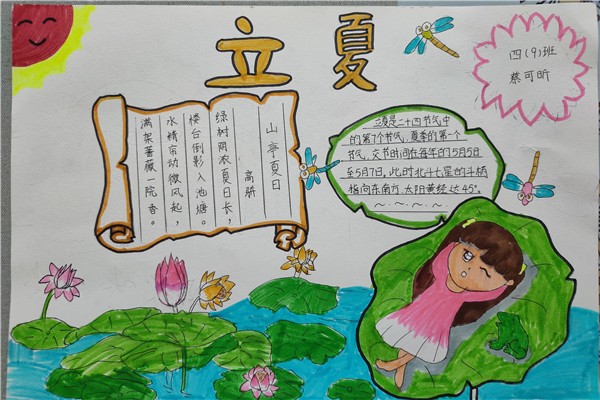 立夏
四(9)班
蔡可昕
山亭夏日
高骈
绿树阴浓夏日长，
楼台倒影入池塘。
水精帘动微风起，
满架蔷薇一院香。
立夏是二十四节气中
的第7个节气，夏季的第一个
节气，交节时间在每年的5月5日
至5月7日，此时北斗七星的斗柄
指向东南方，太阳黄经达45°。